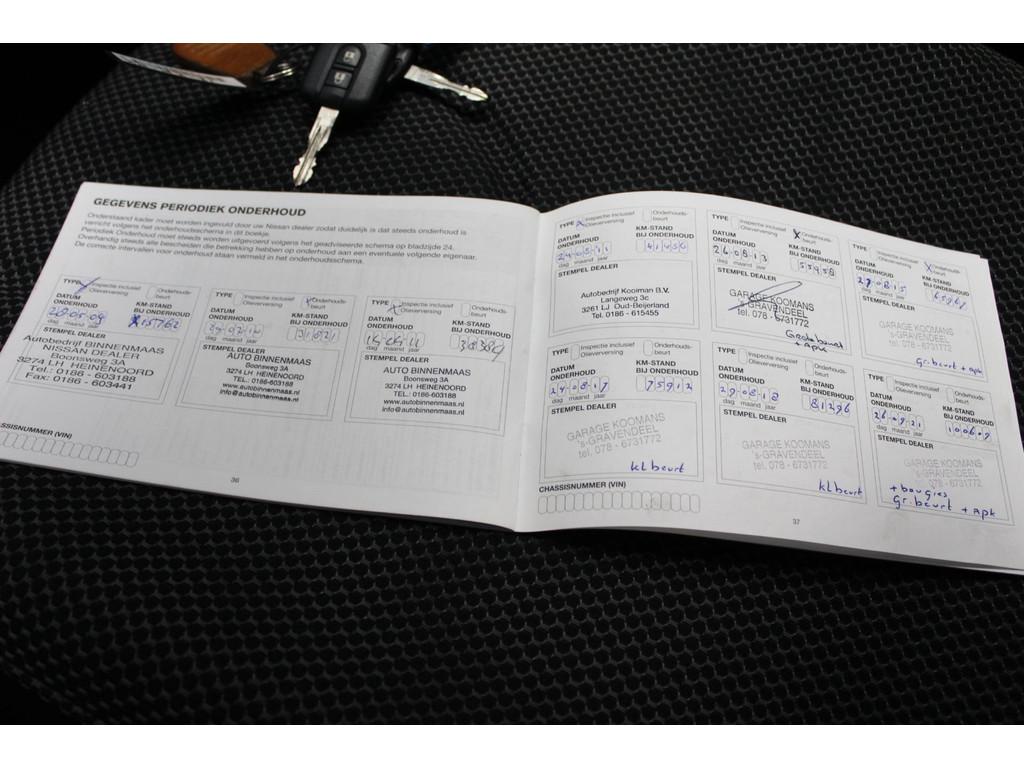 GEGEVENS PERIODIEK ONDERHOUD
Onderstaand kader moet worden ingevuld door uw Nissan dealer zodat duidelijk is dat steeds onderhoud is
verricht volgens het onderhoudsschema in dit boekje.
Periodiek Onderhoud moet steeds worden uitgevoerd volgens het geadviseerde schema op bladzijde 24.
Overhandig steeds alle bescheiden die betrekking hebben op onderhoud aan een eventuele volgende eigenaar.
De correcte intervallen voor onderhoud staan vermeld in het onderhoudsschema.
TYPE Inspectie inclusief Olieverversing Onderhouds-beurt
DATUM ONDERHOUD KM-STAND BIJ ONDERHOUD
28 05 09 15762
dag maand jaar
STEMPEL DEALER
Autobedrijf BINNENMAAS
NISSAN DEALER
Boonsweg 3A
3274 LH HEINENOORD
Tel.: 0186 - 603188
Fax: 0186 - 603441
Inspectie inclusief Olieverversing x Onderhouds-beurt
DATUM ONDERHOUD KM-STAND BIJ ONDERHOUD
31821
dag maand jaar
STEMPEL DEALER
AUTO BINNENMAAS
Boonsweg 3A
3274 LH HEINENOORD
TEL.: 0186-603188
www.autobinnenmaas.nl
info@autobinnenmaas.nl
TYPE x Inspectie inclusief Olieverversing Onderhouds-beurt
DATUM ONDERHOUD KM-STAND BIJ ONDERHOUD
dag maand jaar
STEMPEL DEALER
AUTO BINNENMAAS
Boonsweg 3A
3274 LH HEINENOORD
TEL.: 0186-603188
www.autobinnenmaas.nl
info@autobinnenmaas.nl
ASSISNUMMER (VIN)
36
TYPE x Inspectie inclusief Olieverversing Onderhouds-beurt
DATUM ONDERHOUD KM-STAND BIJ ONDERHOUD
41456
dag maand jaar
STEMPEL DEALER
Autobedrijf Kooman B.V.
Langeweg 3c
3261 LJ Oud-Beijerland
Tel. 0186 - 615455
TYPE Inspectie inclusief Olieverversing x Onderhouds-beurt
DATUM ONDERHOUD KM-STAND BIJ ONDERHOUD
26 08 13 55958
dag maand jaar
STEMPEL DEALER
GARAGE KOOMANS
'S-GRAVENDEEL
tel. 078 - 6731772
Grote beurt
+ apk
TYPE Inspectie inclusief Olieverversing x Onderhouds-beurt
DATUM ONDERHOUD KM-STAND BIJ ONDERHOUD
27 08 15 65961
dag maand jaar
STEMPEL DEALER
GARAGE KOOMANS
'S-GRAVENDEEL
tel. 078 - 6731772
Gr. beurt + apk
TYPE Inspectie inclusief Olieverversing Onderhouds-beurt
DATUM ONDERHOUD KM-STAND BIJ ONDERHOUD
24 08 17 75912
dag maand jaar
STEMPEL DEALER
GARAGE KOOMANS
'S-GRAVENDEEL
tel. 078 - 6731772
kl beurt
TYPE Inspectie inclusief Olieverversing Onderhouds-beurt
DATUM ONDERHOUD KM-STAND BIJ ONDERHOUD
29 08 18 81296
dag maand jaar
STEMPEL DEALER
GARAGE KOOMANS
'S-GRAVENDEEL
tel. 078 - 6731772
kl beurt
TYPE Inspectie inclusief Olieverversing Onderhouds-beurt
DATUM ONDERHOUD KM-STAND BIJ ONDERHOUD
dag maand jaar
STEMPEL DEALER
GARAGE KOOMANS
'S-GRAVENDEEL
tel. 078 - 6731772
+ bougies
Gr. beurt + apk
CHASSISNUMMER (VIN)
37